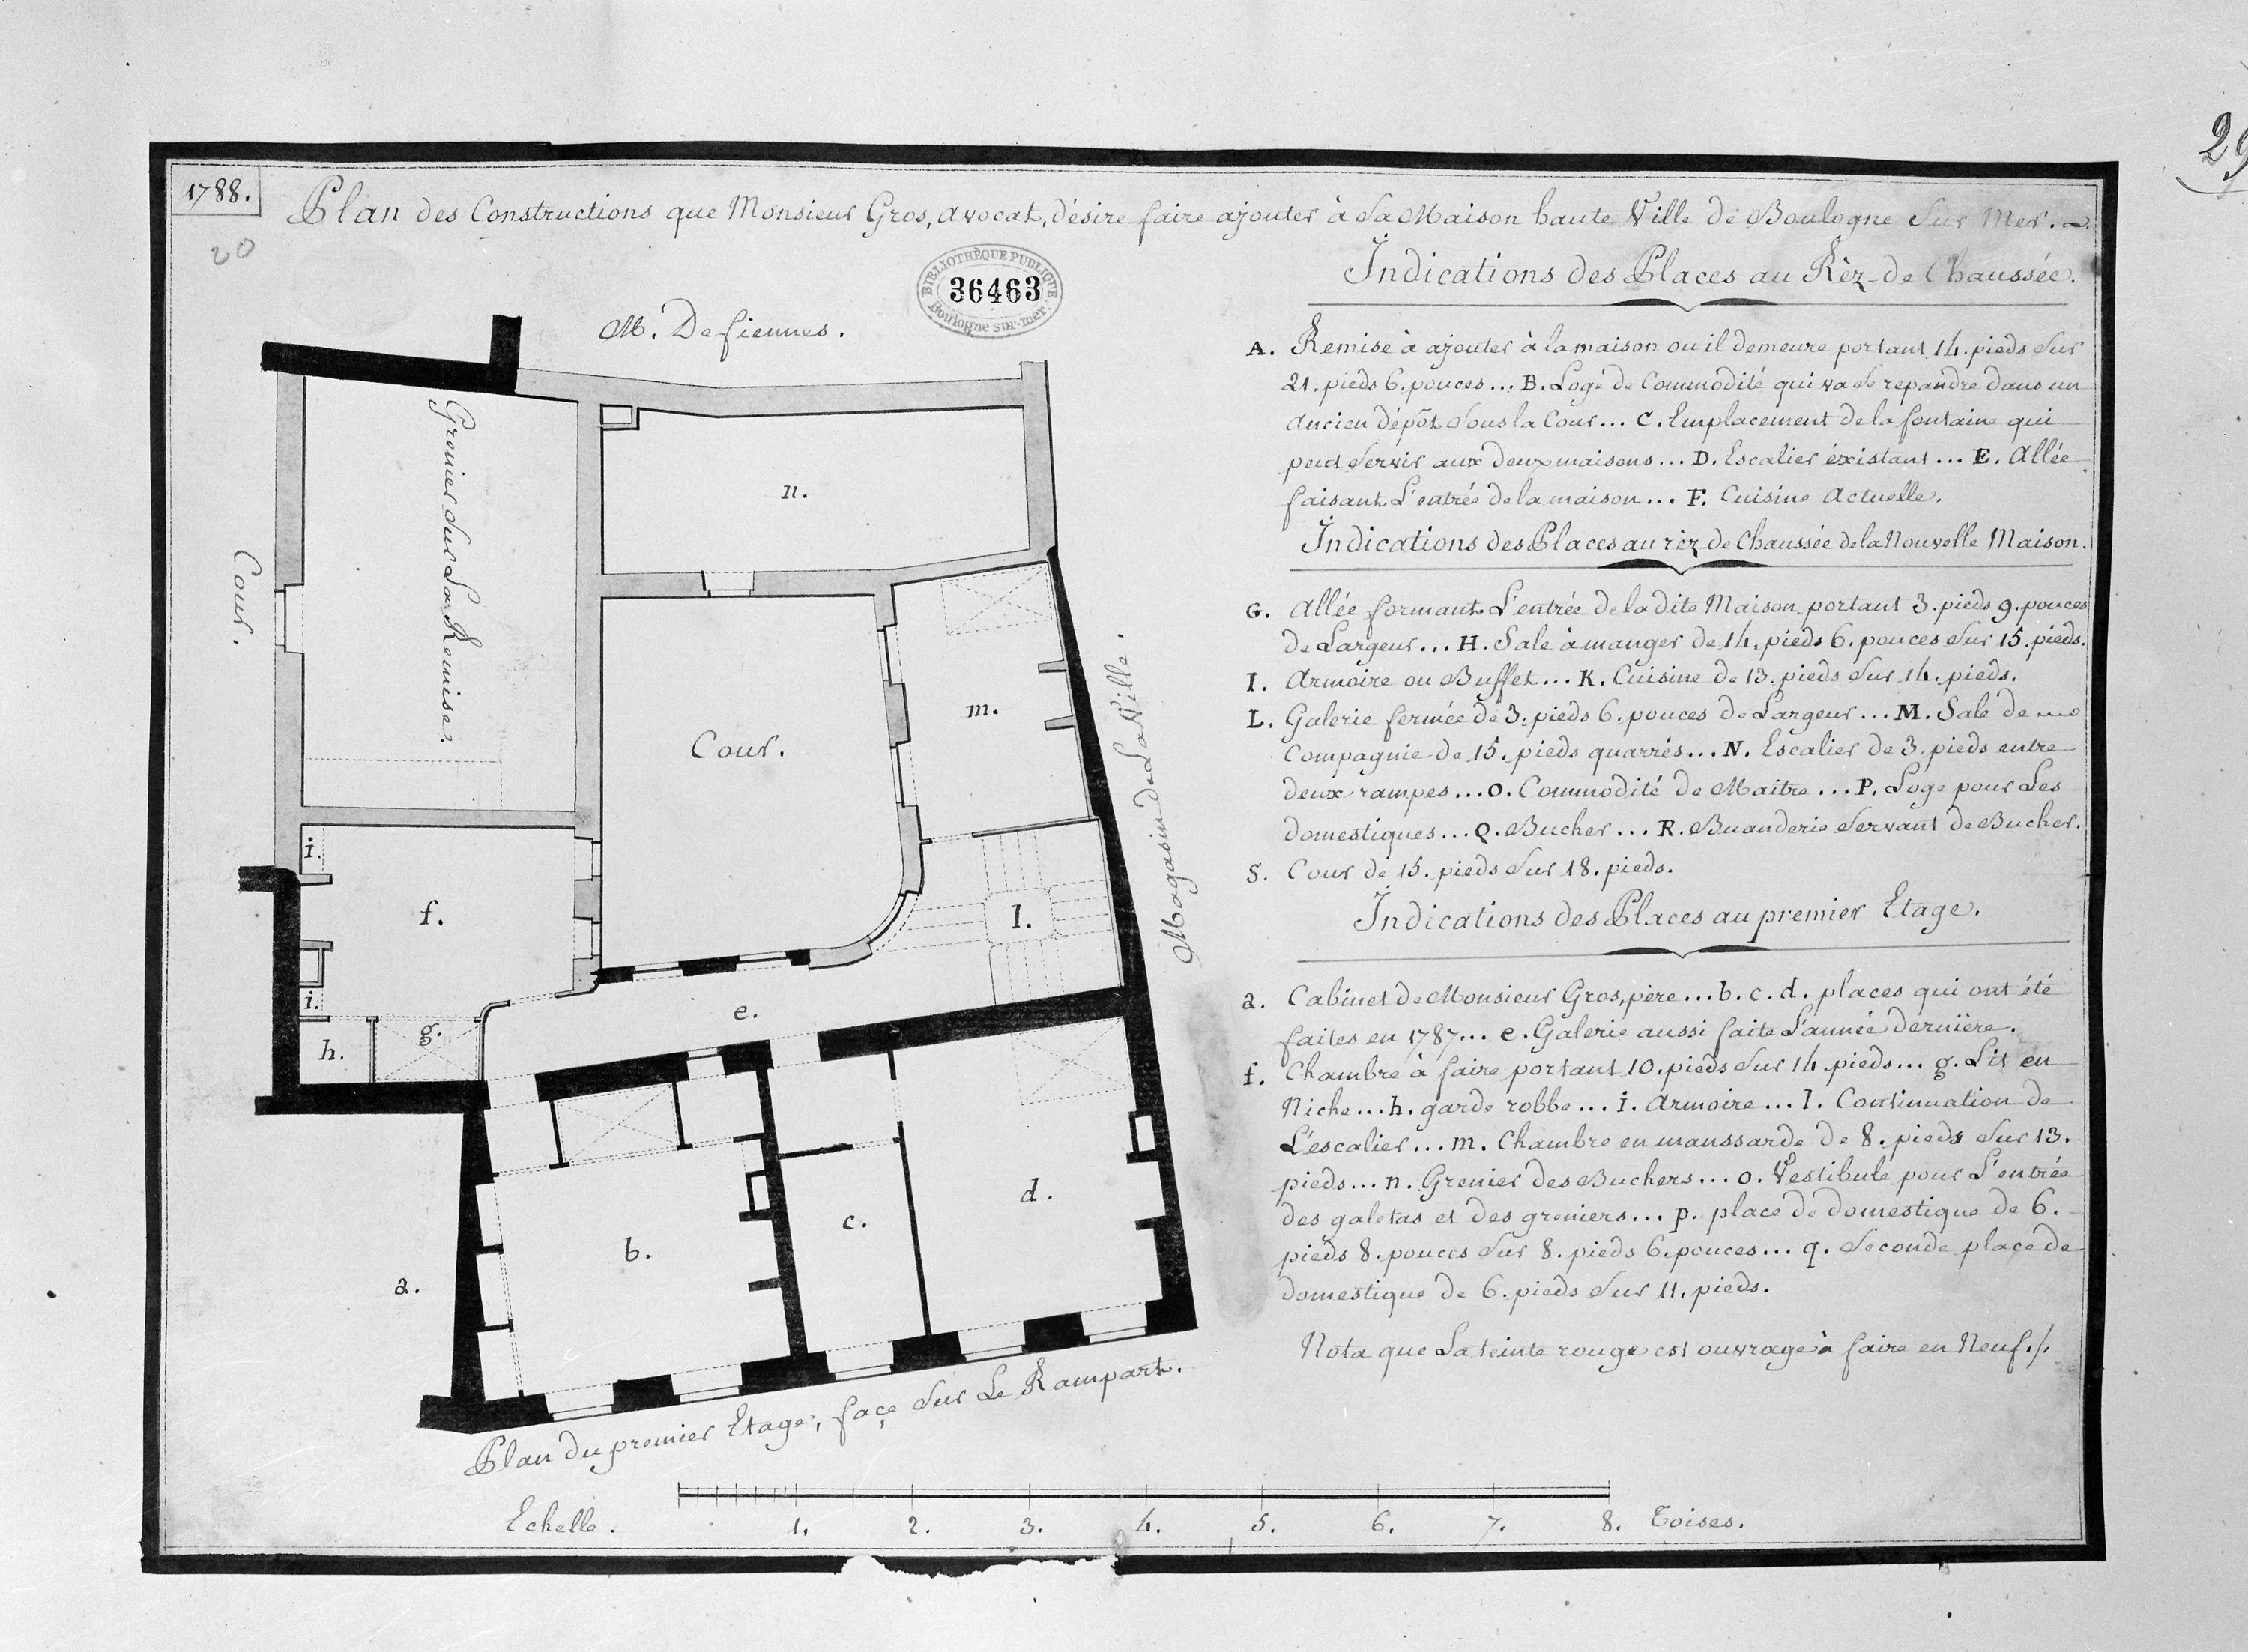 29
1788.
20
Plan des Constructions que Monsieur Gros, avocat, désire faire ajouter à Sa Maison haute Ville de Boulogne Sur Mer.
BIBLIOTHÈQUE PUBLIQUE
36463
Boulogne sur-mer.
M. De fiennes.
Grenier Sur La Remise.
Cour.
n.
Cour.
m.
Magasin De La Ville.
i.
f.
l.
i.
e.
h.
g.
d.
c.
b.
a.
Plan Du premier Etage, façe Sur Le Rampart.
Echelle. 1. 2. 3. 4. 5. 6. 7. 8. Toises.
Indications des Places au Rèz-de Chaussée.
A. Remise à ajouter à la maison ou il demeure portant 14. pieds Sur
21. pieds 6. pouces... B. Loge de Commodité qui va se repandre dans un
ancien dépôt Sous la Cour... C. Emplacement de la fontaine qui
peut Servir aux deux maisons... D. Escalier éxistant... E. Allée
faisant L'entrée de la maison... F. Cuisine Actuelle.
Indications des Places au rèz de Chaussée de la Nouvelle Maison.
G. Allée formant L'entrée de la dite Maison, portant 3. pieds 9. pouces
de Largeur... H. Sale à manger de 14. pieds 6. pouces Sur 15. pieds.
I. Armoire ou Buffet... K. Cuisine de 13. pieds Sur 14. pieds.
L. Galerie fermée de 3. pieds 6. pouces de Largeur... M. Sale de
Compagnie de 15. pieds quarrés... N. Escalier de 3. pieds entre
deux rampes... O. Commodité de Maitre... P. Loge pour Les
domestiques... Q. Bucher... R. Buanderie Servant de Bucher.
S. Cour de 15. pieds Sur 18. pieds.
Indications des Places au premier Etage.
a. Cabinet de Monsieur Gros, père... b. c. d. places qui ont été
faites en 1787... e. Galerie aussi faite L'année dernière.
f. Chambre à faire portant 10. pieds Sur 14 pieds... g. Lit en
Niche... h. garde robbe... i. Armoire... l. Continuation de
L'escalier... m. Chambre en manssarde de 8. pieds Sur 13.
pieds... n. Grenier des Buchers... o. Vestibule pour L'entrée
des galetas et des greniers... p. place de domestique de 6.
pieds 8. pouces Sur 8. pieds 6. pouces... q. Seconde place de
domestique de 6. pieds Sur 11. pieds.
Nota que La teinte rouge est ouvrage à faire en Neuf./.